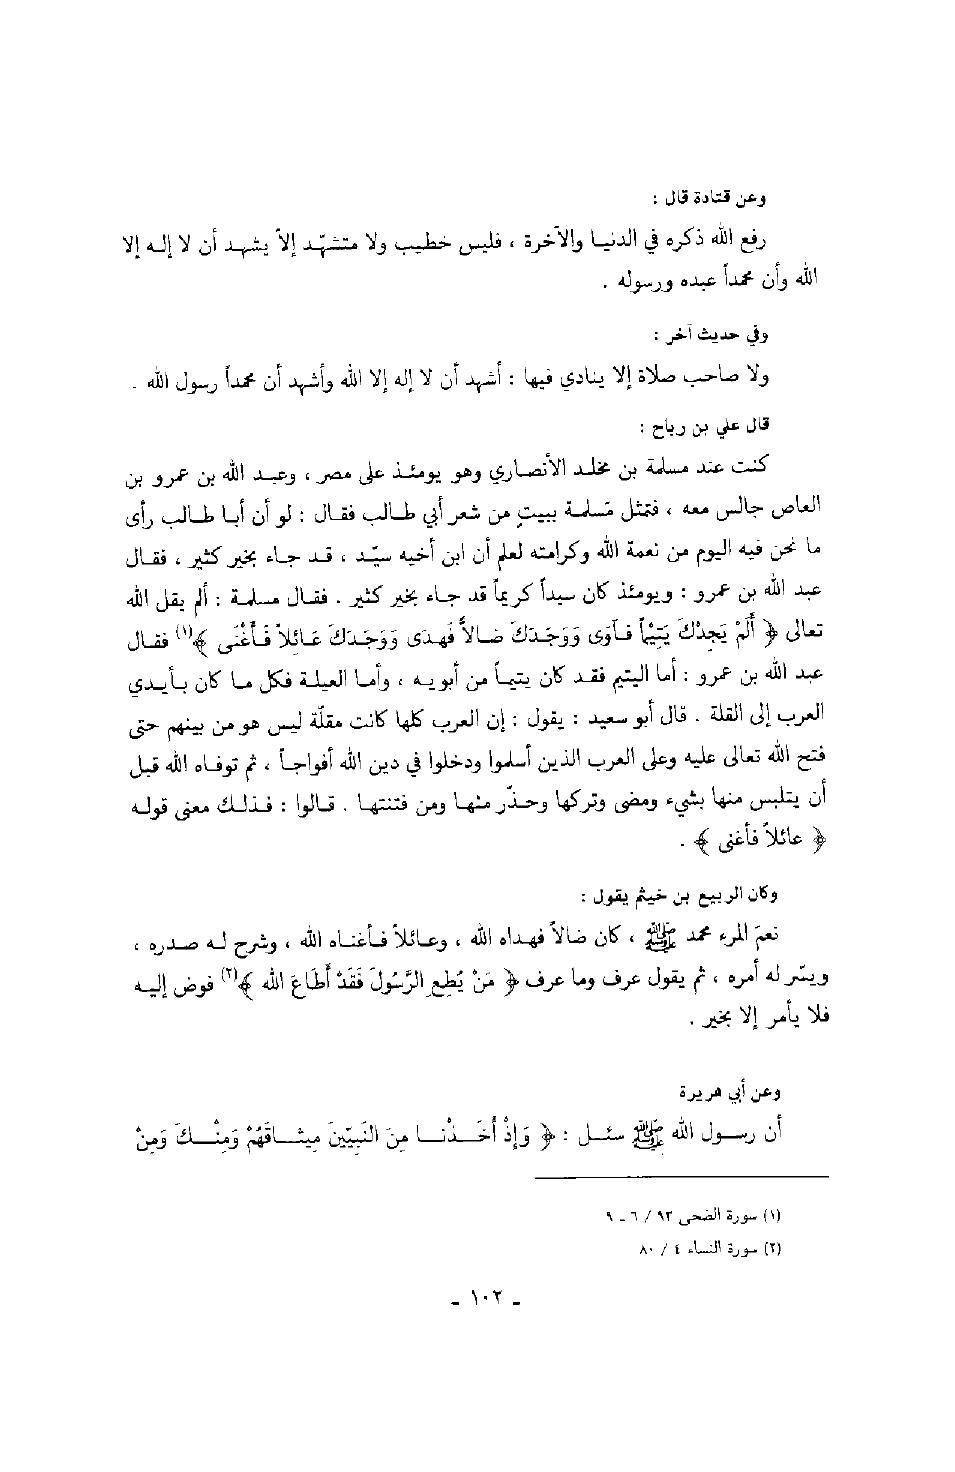 وعن قتادة قال :
رفع الله ذكره في الدنيا والآخرة ، فليس خطيب ولا متشهّد إلاّ يشهد أن لا إله إلا
الله وأن محمداً عبده ورسوله .
وفي حديث آخر :
ولا صاحب صلاة إلا ينادي فيها : أشهد أن لا إله إلا الله وأشهد أن محمداً رسول الله .
قال علي بن رباح :
كنت عند مسلمة بن مخلد الأنصاري وهو يومئذ على مصر ، وعبد الله بن عمرو بن
العاص جالس معه ، فتمثل مَسلمة ببيتٍ من شعر أبي طالب فقال : لو أن أبا طالب رأى
ما نحن فيه اليوم من نعمة الله وكرامته لعلم أن ابن أخيه سيّد ، قد جاء بخير كثير ، فقال
عبد الله بن عمرو : ويومئذ كان سيداً كريماً قد جاء بخير كثير . فقال مسلمة : ألم يقل الله
تعالى ﴿ أَلَمْ يَجِدْكَ يَتِيْماً فَآوَى وَوَجَدَكَ ضَالاًّ فَهَدَى وَوَجَدَكَ عَائِلاً فَأَغْنَى ﴾(١) فقال
عبد الله بن عمرو : أما اليتيم فقد كان يتيماً من أبويه ، وأما العيلة فكل ما كان بأيدي
العرب إلى القلة . قال أبو سعيد : يقول : إن العرب كلها كانت مقلّة ليس هو من بينهم حتى
فتح الله تعالى عليه وعلى العرب الذين أسلموا ودخلوا في دين الله أفواجاً ، ثم توفاه الله قبل
أن يتلبس منها بشيء ومضى وتركها وحذّر منها ومن فتنتها . قالوا : فذلك معنى قوله
﴿ عائلاً فأغنى ﴾ .
وكان الربيع بن خيثم يقول :
نعمَ المرء محمد ﷺ ، كان ضالاً فهداه الله ، وعائلاً فأغناه الله ، وشرح له صدره ،
ويسّر له أمره ، ثم يقول عرف وما عرف ﴿ مَنْ يُطِعِ الرَّسُولَ فَقَدْ أَطَاعَ الله ﴾(٢) فوض إليه
فلا يأمر إلا بخير .
وعن أبي هريرة
أن رسول الله ﷺ سئل : ﴿ وَإِذْ أَخَذْنَا مِنَ النَّبِيّيْنَ مِيثَاقَهُمْ وَمِنْكَ وَمِنْ
(١) سورة الضحى ٩٣ / ٦ - ٩
(٢) سورة النساء ٤ / ٨٠
- ١٠٢ -